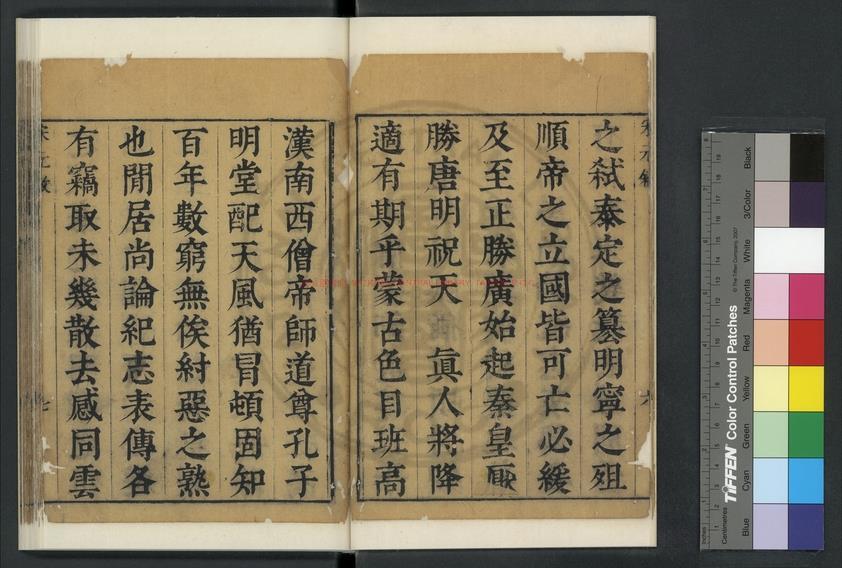 之弒泰定之篡明寧之殂
順帝之立國皆可亡必緩
及至正勝廣始起秦皇厭
勝唐明祝天 眞人將降
適有期乎蒙古色目班高
漢南西僧帝師道尊孔子
明堂配天風猶冒頓固知
百年數窮無俟紂惡之熟
也閒居尚論紀志表傳各
有竊取未幾散去感同雲
七
TIFFEN Color Control Patches
© The Tiffen Company, 2007
Blue Cyan Green Yellow Red Magenta White 3/Color Black
Inches
Centimetres